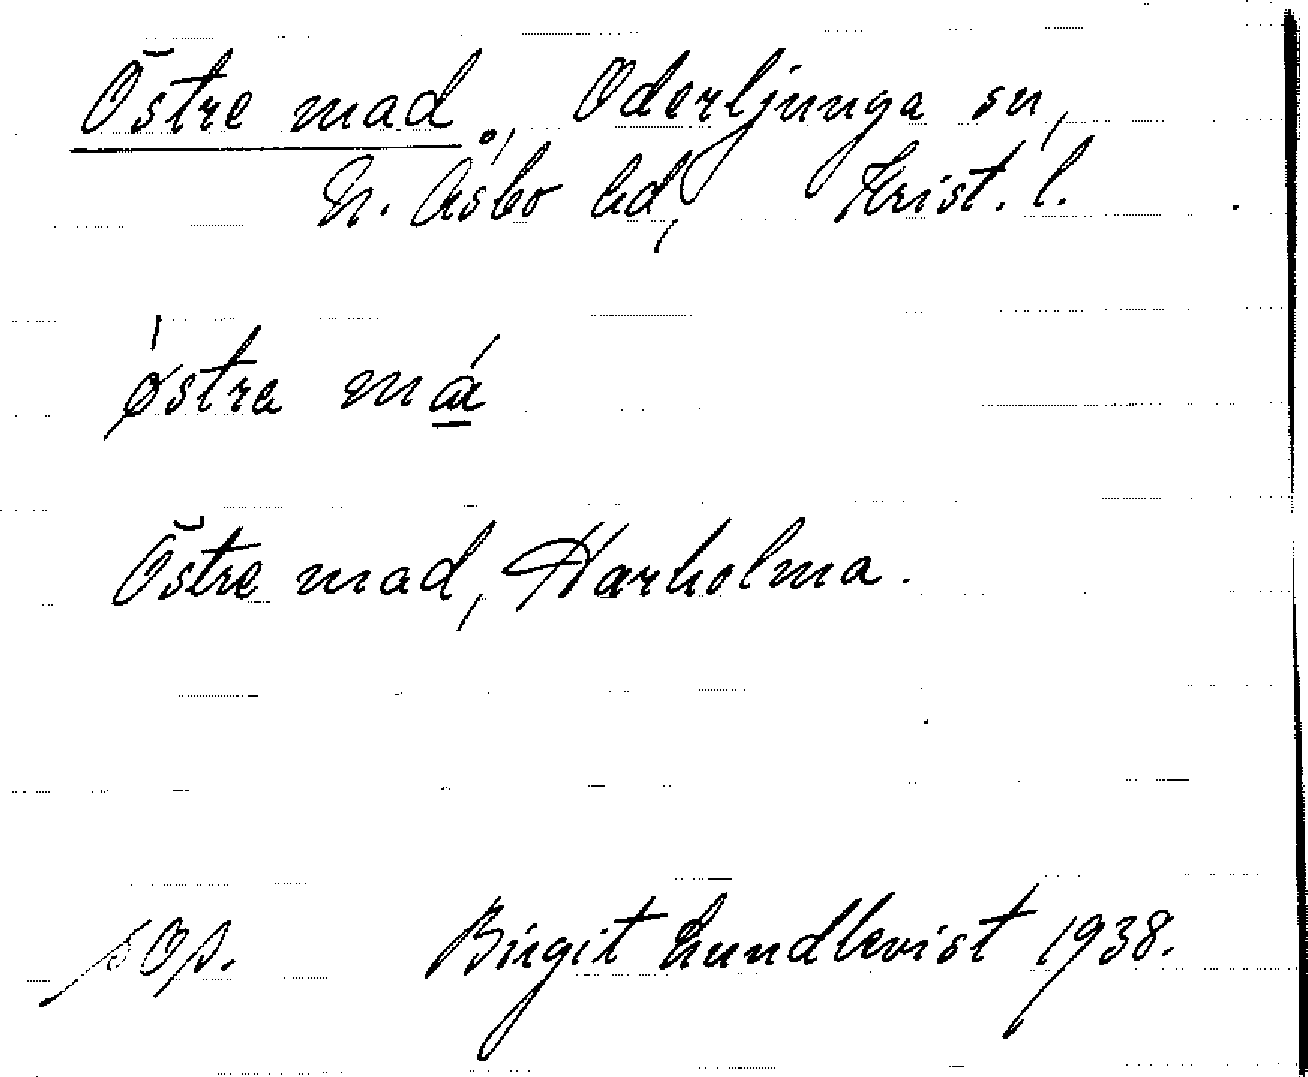 Östre mad, Oderljunga sn,
N. Åsbo hd, Krist. l.
østra má
Östre mad, Harholma.
sop. Birgit Lundkvist 1938.